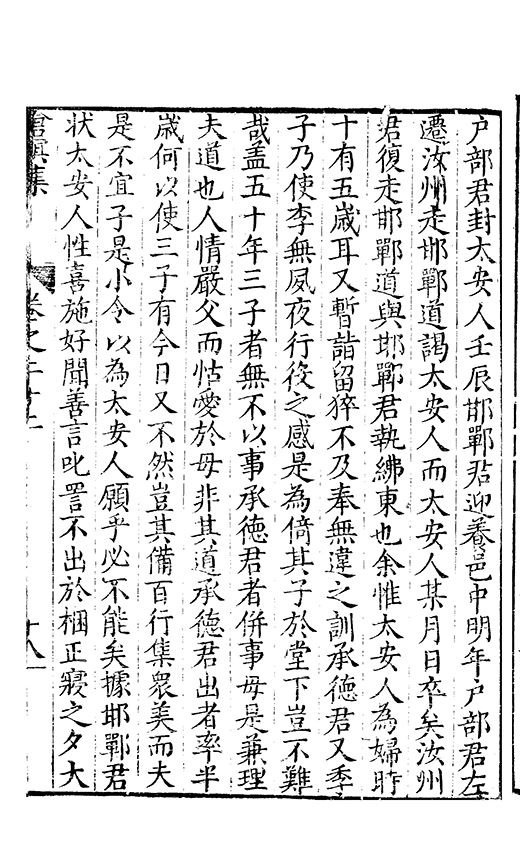 户部君封太安人壬辰邯鄲君迎養邑中明年户部君左
遷汝州走邯鄲道謁太安人而太安人某月日卒矣汝州
君復走邯鄲道與邯鄲君執紼東也余惟太安人為婦時
十有五歲耳又暫詣留猝不及奉無違之訓承德君又季
子乃使李無夙夜行役之感是為倚其子於堂下豈不難
哉盖五十年三子者無不以事承德君者併事母是兼理
夫道也人情嚴父而怙愛於母非其道承德君出者率半
歲何以使三子有今日又不然豈其備百行集衆美而夫
是不宜子是小令以為太安人願乎必不能矣據邯鄲君
状太安人性喜施好聞善言叱詈不出於梱正寢之夕大
滄溟集 卷之二十 十八